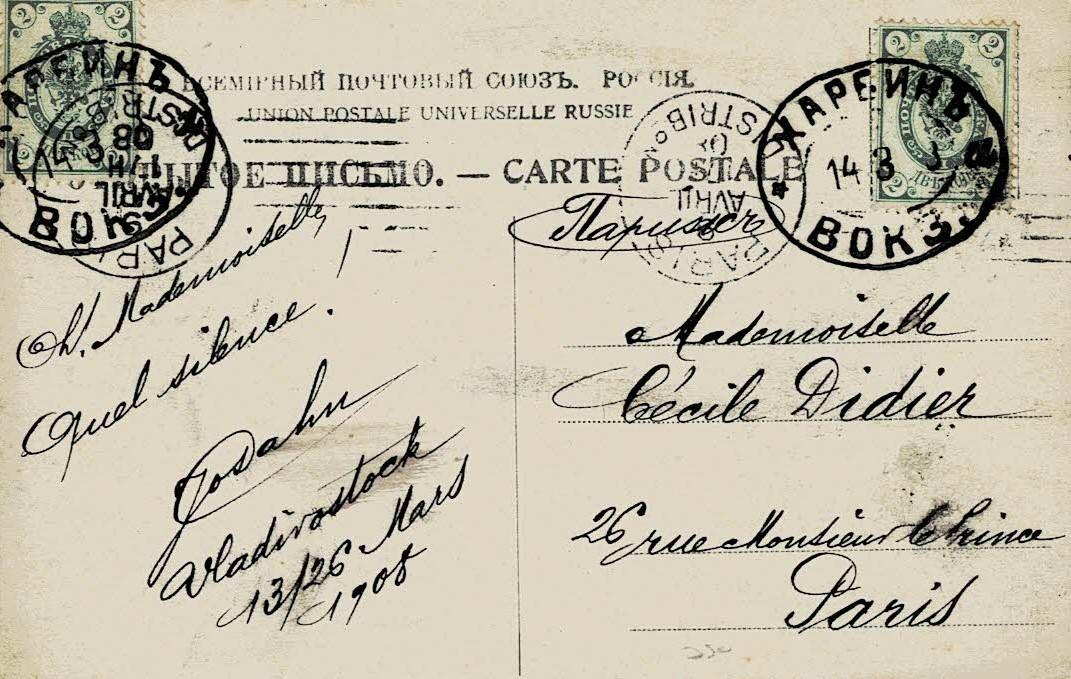 ВСЕМІРНЫЙ ПОЧТОВЫЙ СОЮЗЪ. РОССІЯ.
UNION POSTALE UNIVERSELLE RUSSIE
ПИСЬМО. — CARTE POSTALE
2 2
2 2
ХАРБИНЪ
14 3
ВОКЗ.
PARIS
DISTRIB
AVRIL
08
Oh! Mademoiselle,
Quel silence!
Vladivostock
13/26 Mars
1908
Mademoiselle
Cécile Didier
26 rue Monsieur le Prince
Paris